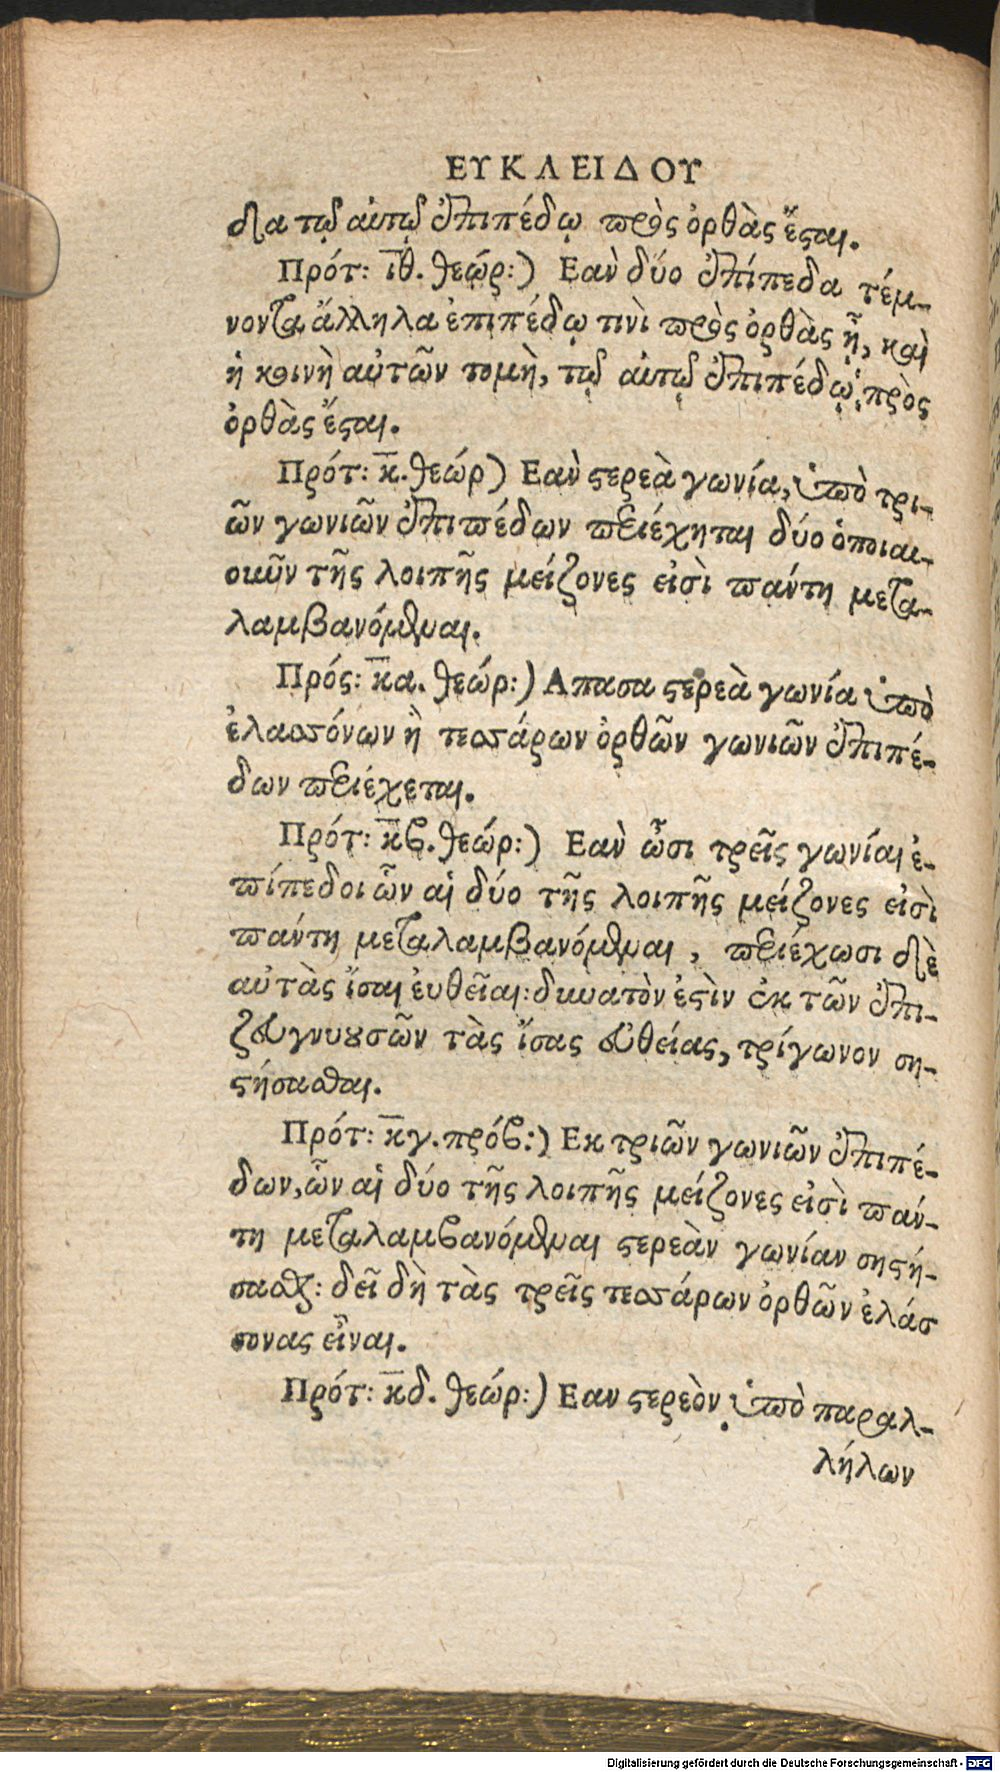 ΕΥΚΛΕΙΔΟΥ
δια τῷ αὐτῷ ἐπιπέδῳ πρὸς ὀρθὰς ἔσται.
Πρότ: ιθ. θεώρ:) Εαν δύο ἐπίπεδα τέμ-
νοντα ἄλληλα ἐπιπέδῳ τινὶ πρὸς ὀρθὰς ᾖ, καὶ
ἡ κοινὴ αὐτῶν τομὴ, τῷ αὐτῷ ἐπιπέδῳ πρὸς
ὀρθὰς ἔσται.
Πρότ: κ. θεώρ) Εαν στερεὰ γωνία, ὑπὸ τρι-
ῶν γωνιῶν ἐπιπέδων περιέχηται δύο ὁποιαι-
οιοῦν τῆς λοιπῆς μείζονες εἰσὶ πάντη μετα-
λαμβανόμεναι.
Πρός: κα. θεώρ:) Απασα στερεὰ γωνία ὑπὸ
ἐλασσόνων ἢ τεσσάρων ὀρθῶν γωνιῶν ἐπιπέ-
δων περιέχεται.
Πρότ: κβ. θεώρ:) Εαν ὦσι τρεῖς γωνίαι ἐ-
πίπεδοι ὧν αἱ δύο τῆς λοιπῆς μείζονες εἰσὶ
πάντη μεταλαμβανόμεναι, περιέχωσι δὲ
αὐτὰς ἴσαι ἐυθεῖαι: δυνατὸν ἐστὶν ἐκ τῶν ἐπι-
ζευγνυουσῶν τὰς ἴσας εὐθείας, τρίγωνον συ-
στήσασθαι.
Πρότ: κγ. πρόβ:) Εκ τριῶν γωνιῶν ἐπιπέ-
δων, ὧν αἱ δύο τῆς λοιπῆς μείζονες εἰσὶ πάν-
τη μεταλαμβανόμεναι στερεὰν γωνίαν συστή-
σασθαι: δεῖ δὴ τὰς τρεῖς τεσσάρων ὀρθῶν ἐλάσ
σονας εἶναι.
Πρότ: κδ. θεώρ:) Εαν στερεὸν ὑπὸ παραλ-
λήλων
Digitalisierung gefördert durch die Deutsche Forschungsgemeinschaft - DFG